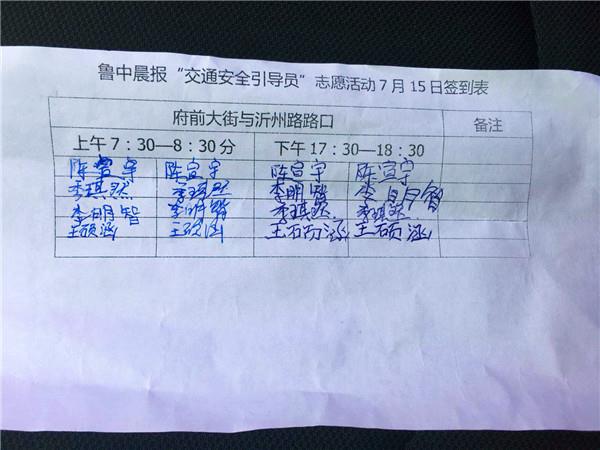 鲁中晨报“交通安全引导员”志愿活动7月15日签到表
府前大街与沂州路路口 备注
上午7：30—8：30分 下午17：30—18：30
陈宣宇 陈宣宇 陈宣宇 陈宣宇
李琪然 李琪然 李明智 李明智
李明智 李明智 李琪然 李琪然
王硕涵 王硕涵 王硕涵 王硕涵